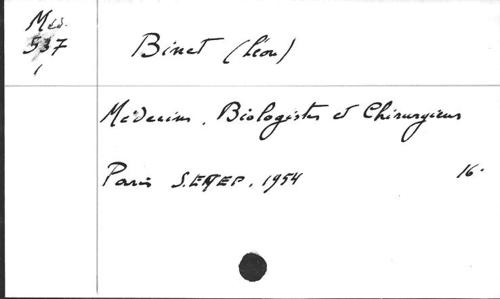 Méd.
537
1
Binet (Léon)
Médecins, Biologistes et Chirurgiens
Paris S.E.P.E.P., 1954 16°